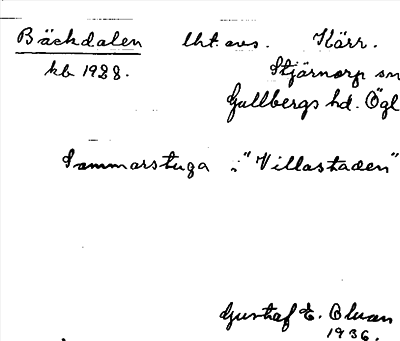 Bäckdalen lht. avs. Kärr.
kb 1928. Stjärnorp sn
Gullbergs hd. Ögl
Sommarstuga i "Villastaden"
Gustaf E. Olsson
1936.